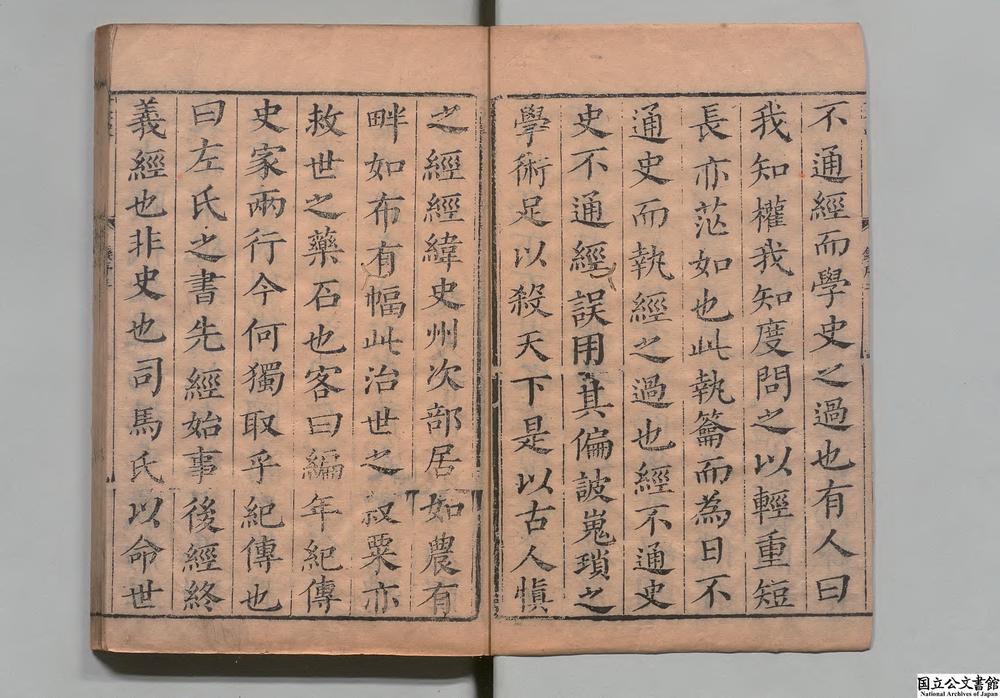 不通經而學史之過也有人曰
我知權我知度問之以輕重短
長亦茫如也此執籥而為日不
通史而執經之過也經不通史
史不通經誤用其偏詖嵬瑣之
學術足以殺天下是以古人慎
之經經緯史州次部居如農有
畔如布有幅此治世之菽粟亦
救世之藥石也客曰編年紀傳
史家兩行今何獨取乎紀傳也
曰左氏之書先經始事後經終
義經也非史也司馬氏以命世
国立公文書館
National Archives of Japan